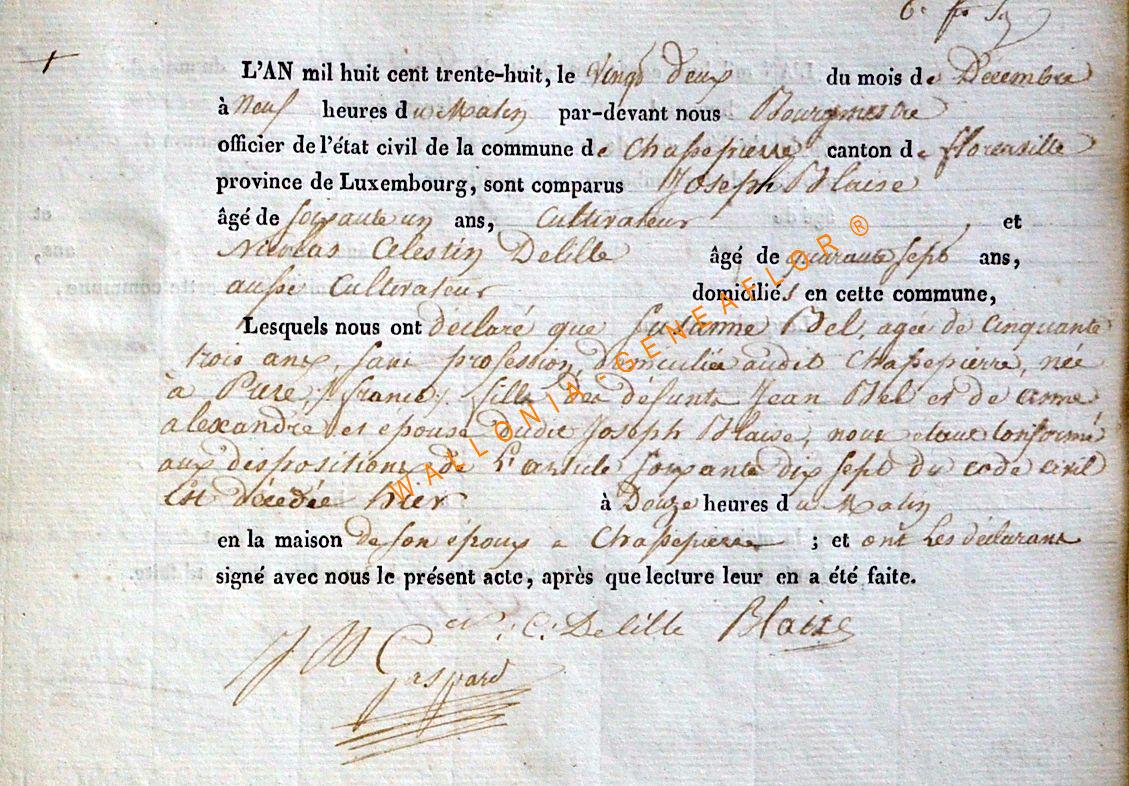 L'AN mil huit cent trente-huit, le Vingt deux du mois de Décembre
à Neuf heures du Matin par-devant nous Bourgmestre
officier de l'état civil de la commune de Chassepierre canton de florenville
province de Luxembourg, sont comparus Joseph Blaise
âgé de soixante un ans, Cultivateur , et
Nicolas Celestin Delille âgé de quarante sept ans,
aussi Cultivateur domiciliés en cette commune,
Lesquels nous ont déclaré que Susanne Bel, agée de cinquante
trois ans, sans profession, domiciliée audit Chassepierre, née
à Pure, france, fille des défunts Jean Bel et de anne
alexandre et épouse dudit Joseph Blaise, nous etant conformé
aux dispositions de L'article soixante dix sept du code civil
Est décedée hier à Douze heures du Matin
en la maison de son époux a Chassepierre ; et ont Les déclarant
signé avec nous le présent acte, après que lecture leur en a été faite.
N. C. Delille Blaise
Gaspard
WALLONIA-GENEAFLOR®